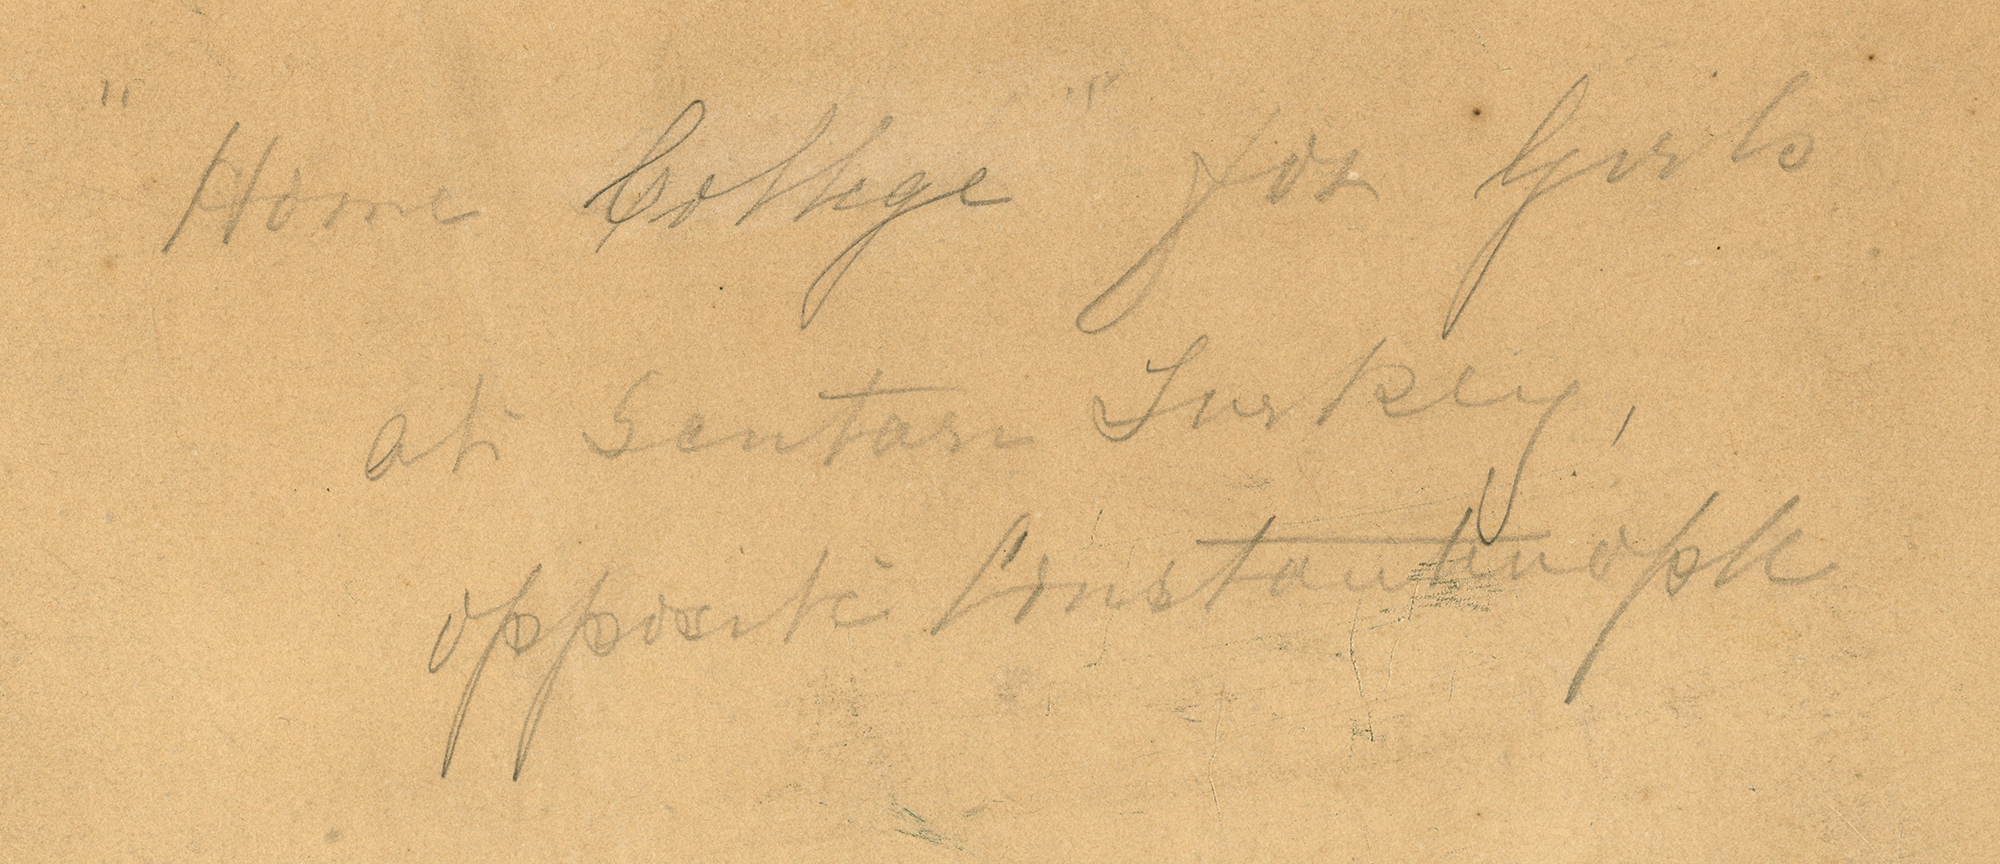 "Home College" for Girls
at Scutari Turkey,
opposite Constantinople